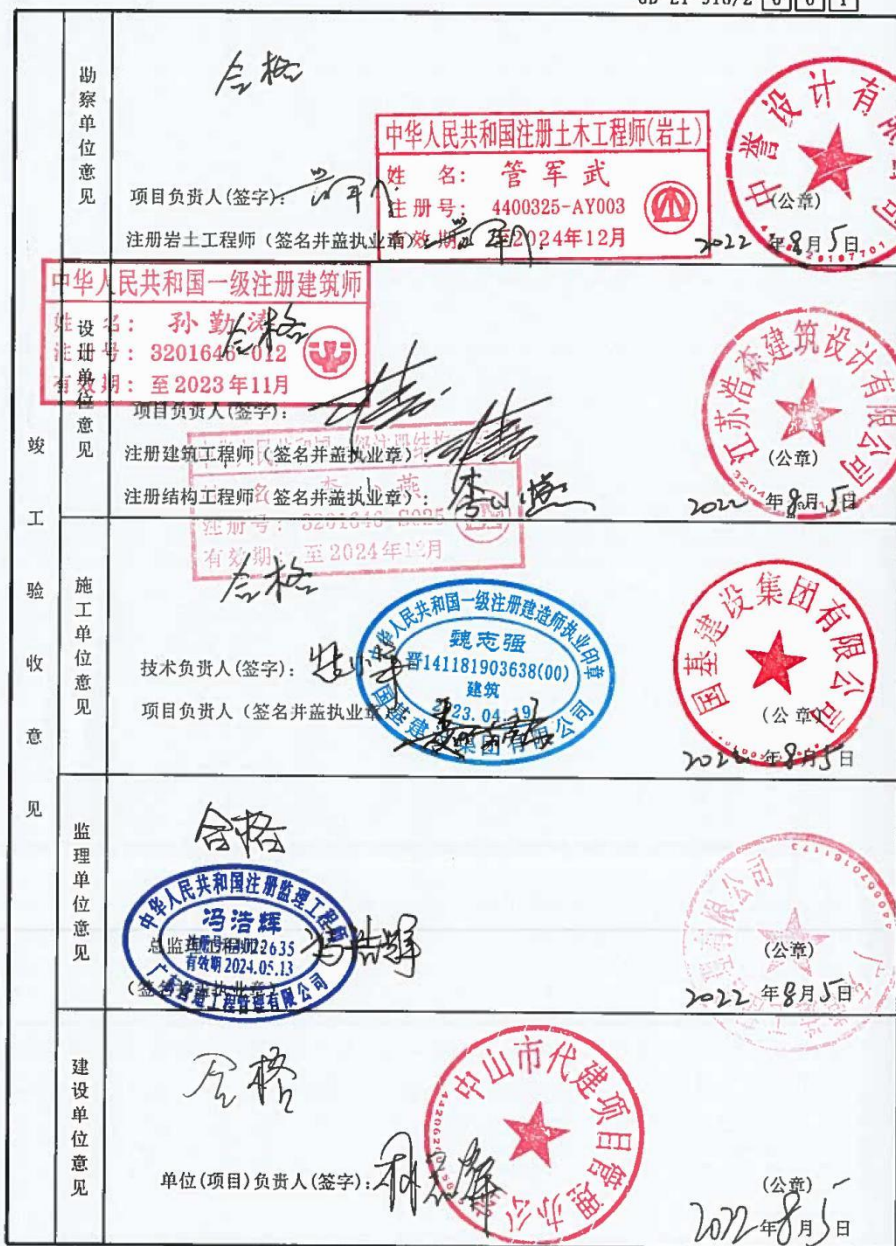 竣工验收意见
勘察单位意见
合格
中华人民共和国注册土木工程师(岩土)
姓 名: 管军武
注册号: 4400325-AY003
有效期: 至2024年12月
项目负责人(签字):
注册岩土工程师(签名并盖执业章)
中誉设计有限公司
(公章)
2022年8月5日
设计单位意见
中华人民共和国一级注册建筑师
姓 名: 孙勤涛
注册号: 3201646-012
有效期: 至2023年11月
合格
项目负责人(签字):
注册建筑工程师(签名并盖执业章):
注册结构工程师(签名并盖执业章): 李小燕
注册号: 3201646-S025
有效期: 至2024年12月
江苏浩森建筑设计有限公司
(公章)
2022年8月5日
施工单位意见
合格
技术负责人(签字):
项目负责人(签名并盖执业章)
中华人民共和国一级注册建造师执业印章
魏志强
晋141181903638(00)
建筑
2023.04.19
国基建设集团有限公司
国基建设集团有限公司
(公章)
2022年8月5日
监理单位意见
合格
中华人民共和国注册监理工程师
冯浩辉
有效期 2024.05.13
总监理工程师: 冯浩辉
(签名并盖执业章)
(公章)
2022年8月5日
建设单位意见
合格
单位(项目)负责人(签字):
中山市代建项目管理办公室
(公章)
2022年8月5日